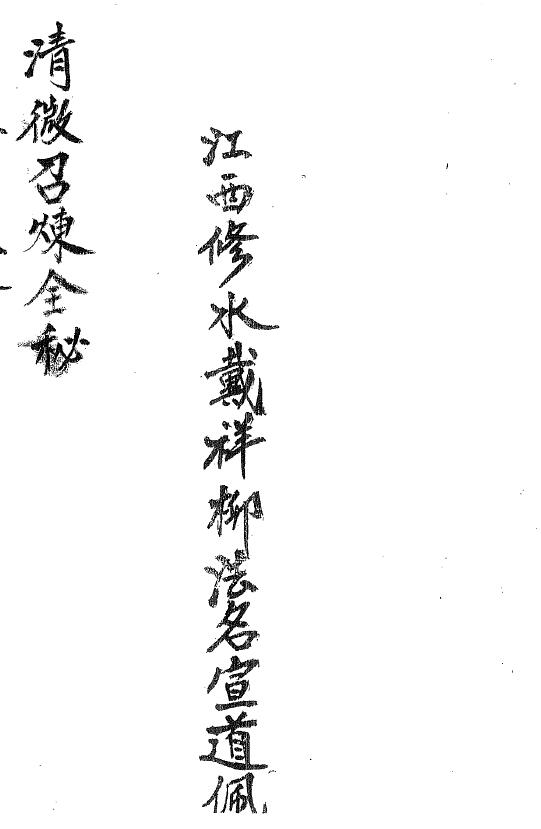 江西修水戴祥柳法名宣道佩
清微召煉全秘